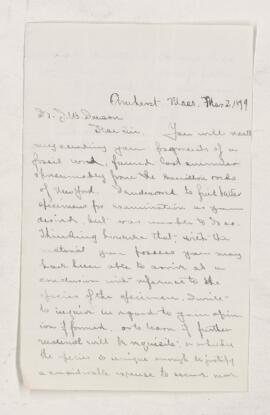 Amherst Mass. Mar 2, 1899
Dr. J. W. Dawson
Dear Sir. You will recall
my sending you fragments of a
fossil wood, found last summer
presumably from the Hamilton rocks
of New York. I endeavored to find better
specimens for examination as you
desired, but was unable to do so.
Thinking however that, with the
material you possess you may
have been able to arrive at a
conclusion with reference to the
species of the specimen, I write
to inquire in regard to your opin
ion if formed, or to learn if further
material will be requisite, or whether
the species is unique enough to justify
a considerable expense to secure more